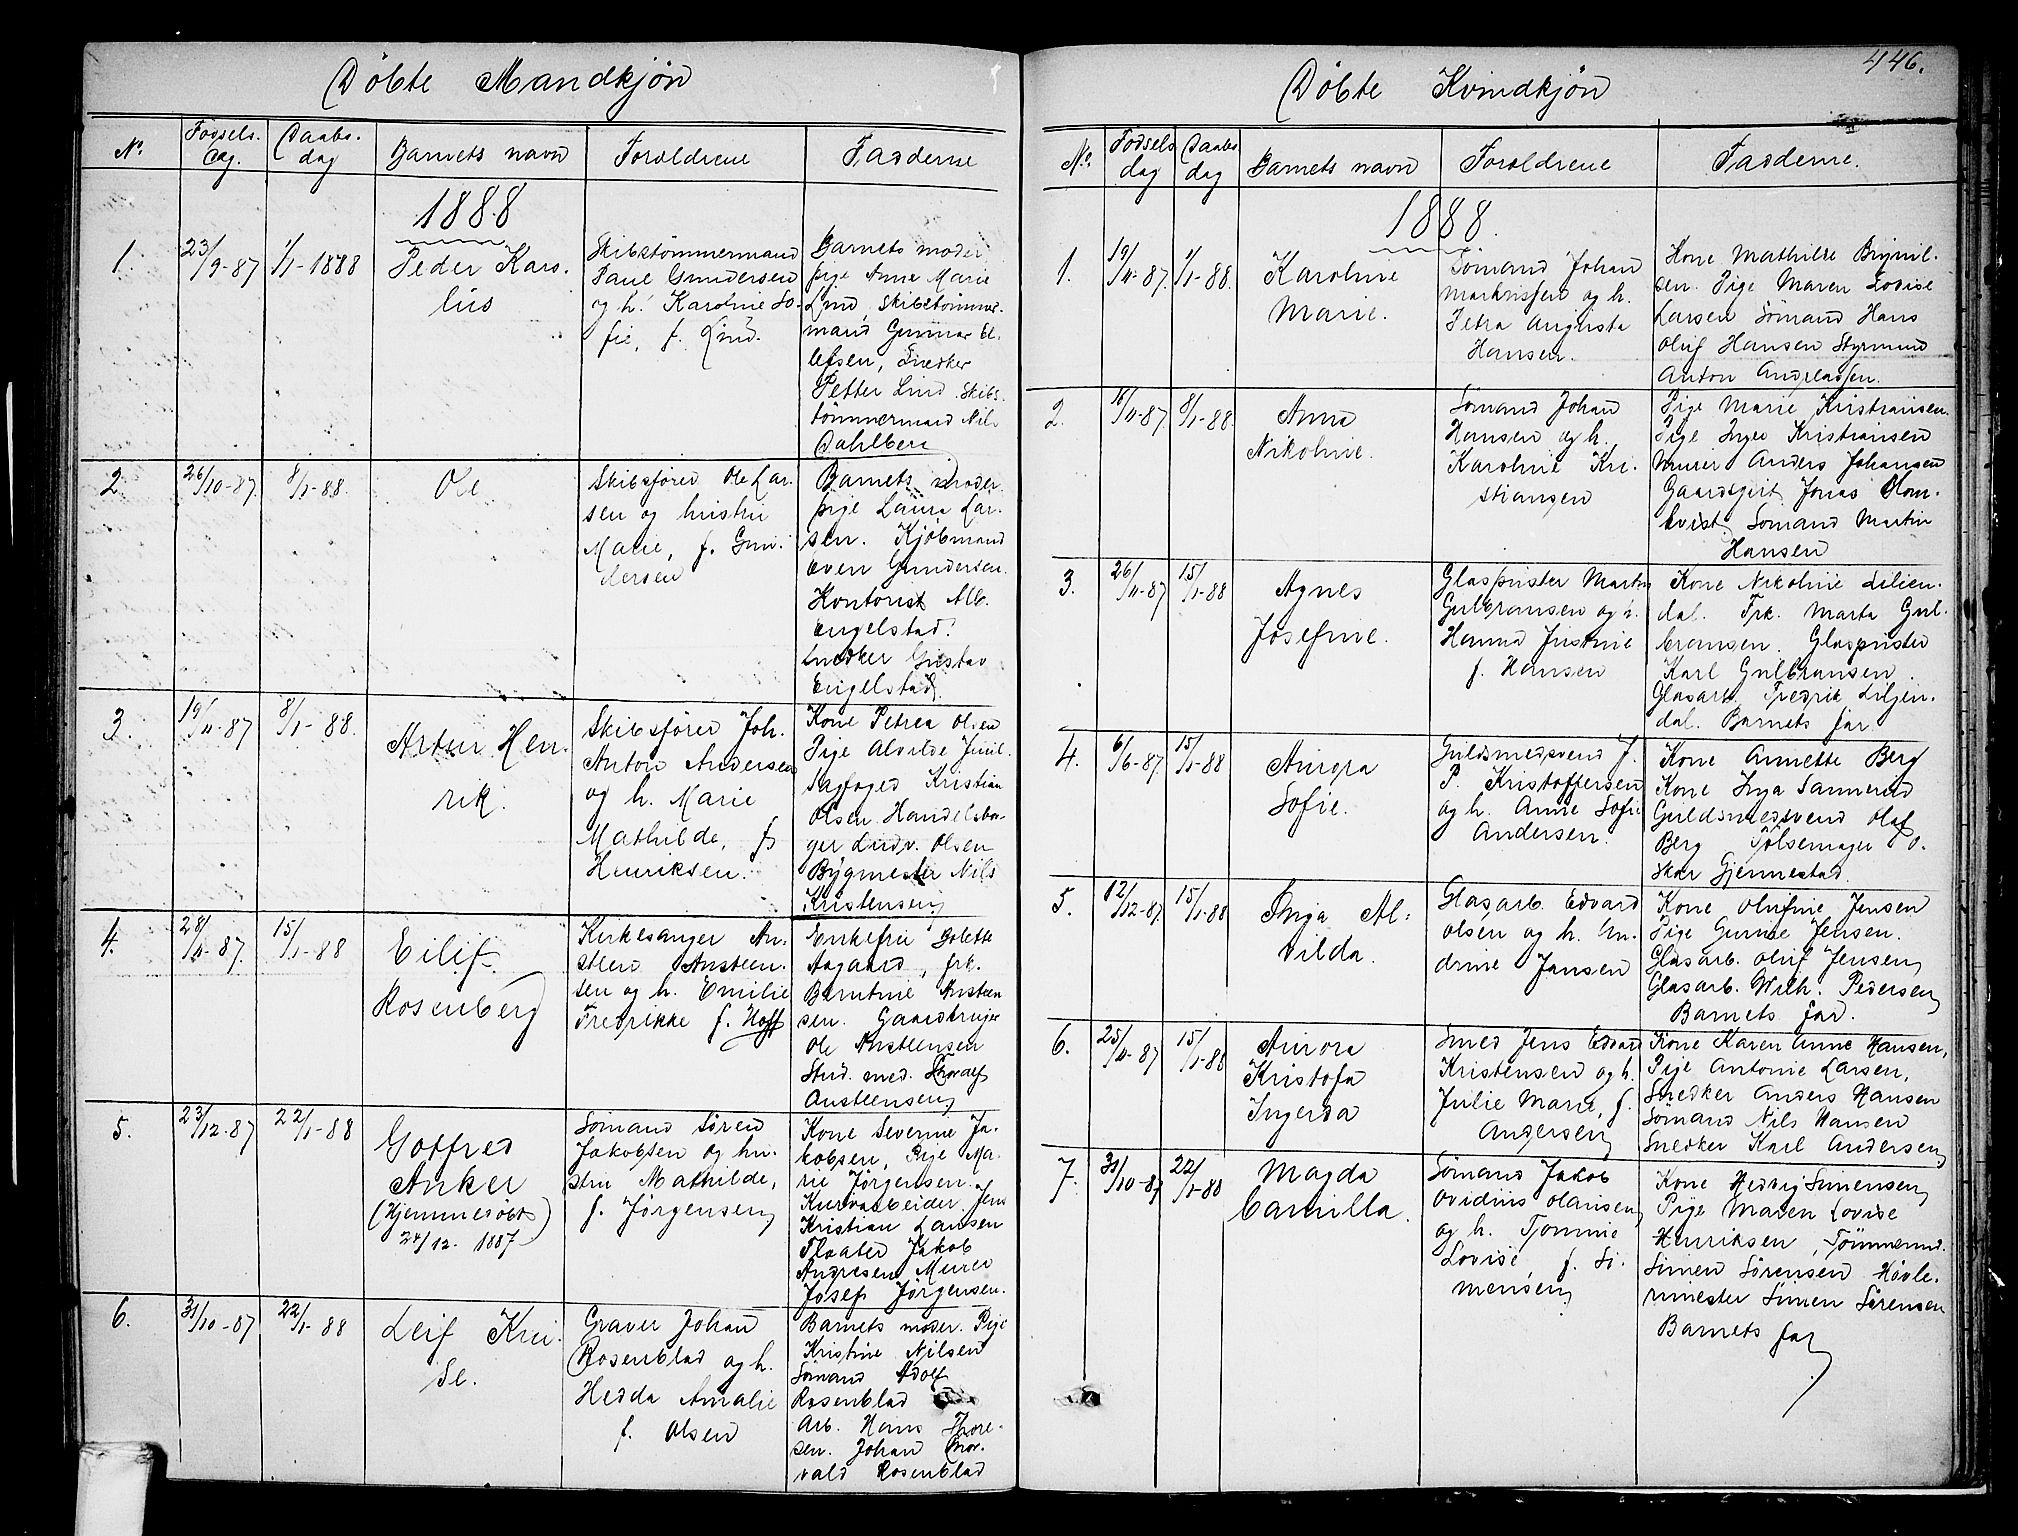 Døbte Mandkjøn
No. Fødsels. dag. Daabs. dag Barnets navn Forældrene Fadderne
1888
1. 23/9-87 1/1-1888
Peder Karo-
lius
Skibstømmermand
Paul Gundersen
og h. Karoline So-
fie, f. Lind.
Barnets moder
pige Anna Marie
Lind, Skibstømmer-
mand Gunnar El-
lefsen, Snedker
Petter Lind, Skibs-
tømmermand Nils
Dahlberg
2. 26/10-87. 8/1-88.
Ole
Skibsfører Ole Lar-
sen og hustru
Marie, f. Gun-
dersen
Barnets moder
pige Laura Lar-
sen. Kjøbmand
Even Gundersen.
Kontorist Alb.
Engelstad.
Snedker Gustav
Engelstad.
3. 19/11-87 8/1-88.
Artur Hen-
rik.
Skibsfører Joh.
Anton Andersen
og h. Marie
Mathilde, f.
Henriksen.
Kone Petrea Olsen
Pige Alvilde Juul-
Sagfoged Kristian
Olsen. Handelsbor-
ger Ludv. Olsen
Bygmester Nils
Kristensen
4. 28/11-87. 15/1-88
Eilif
Rosenberg
Kirkesanger An-
steen Ansteen-
sen og h. Emilie
Fredrikke f. Hoff
Enkefru Golette
Aagaard, frk.
Berntine Ansteen
sen. Gaardbruger
Ole Ansteensen
Stud. med. Thoralf
Ansteensen
5. 23/12-87 22/1-88
Gotfred
Anker
(Hjemmedøbt
24/12. 1887)
Sømand Søren
Jakobsen og hu-
stru Mathilde,
f. Jørgensen
Kone Severine Ja-
kobsen, Pige Ma-
rie Jørgensen.
Kurvarbeider Jens
Kristian Larsen
Fløater Jakob
Andresen Murer
Josef Jørgensen.
6. 31/10-87 22/1-88
Leif Krü-
se.
Graver Johan
Rosenblad og h.
Hedda Amalie
f. Olsen
Barnets moder. Pige
Kristine Nilsen
Sømand Adolf
Rosenblad
Arb. Hans Thore-
sen. Johan Thor-
vald Rosenblad
446.
Døbte Kvindkjøn
No. Fødsels dag Daabs dag Barnets navn Forældrene Fadderne.
1888.
1. 19/11-87. 1/1-88.
Karoline
Marie.
Sømand Johan
Markussen og h.
Petra Augusta
Hansen.
Kone Mathilde Brynil-
sen. Pige Maren Lovise
Larsen Sømand Hans
Oluf Hansen Styrmand
Anton Andreassen.
2. 16/11-87. 8/1-88.
Anna
Nikoline.
Sømand Johan
Hansen og h.
Karoline Kri-
stiansen
Pige Marie Kristiansen.
Pige Inger Kristiansen
Murer Anders Johansen
Gaardsgut Jonas Blom-
kvist, Sømand Martin
Hansen
3. 26/11-87 15/1-88
Agnes
Josefine.
Glaspuster Martin
Gulbransen og h.
Hanna Justine
f. Hansen
Kone Nikoline Lilien-
dal. Frk. Marta Gul-
bransen. Glaspuster
Karl Gulbransen.
Glasarb. Fredrik Liljen-
dal. Barnets far
4. 6/6-87. 15/1-88
Aurora
Sofie.
Guldsmedsvend J.
P. Kristoffersen
og h. Anne Sofie
Andersen.
Kone Annette Berg
Kone Inga Sannerud
Guldsmedsvend Olaf
Berg Pølsemager O-
skar Gjennestad.
5. 12/12-87 15/1-88
Inga Al-
vilda.
Glasarb. Edvard
Olsen og h. An-
drine Jansen
Kone Olufine Jensen
Pige Gurine Jensen.
Glasarb. Oluf Jensen
Glasarb. Wilh. Pedersen
Barnets far.
6. 25/11-87 15/1-88
Aurora
Kristofa
Ingerda
Smed Jens Edvard
Kristensen og h.
Julie Marie, f.
Andersen
Kone Karen Anne Hansen,
Pige Antonie Larsen,
Snedker Anders Hansen
Sømand Nils Hansen
Snedker Karl Andersen
7. 31/10-87 22/1-88
Magda
Camilla.
Sømand Jakob
Ovidius Olausen
og h. Tomine
Lovise, f. Si-
mensen
Kone Hedvig Simensen
Pige Maren Lovise
Henriksen, Tømmermd.
Simen Sørensen Høvle-
mester Simen Sørensen
Barnets far